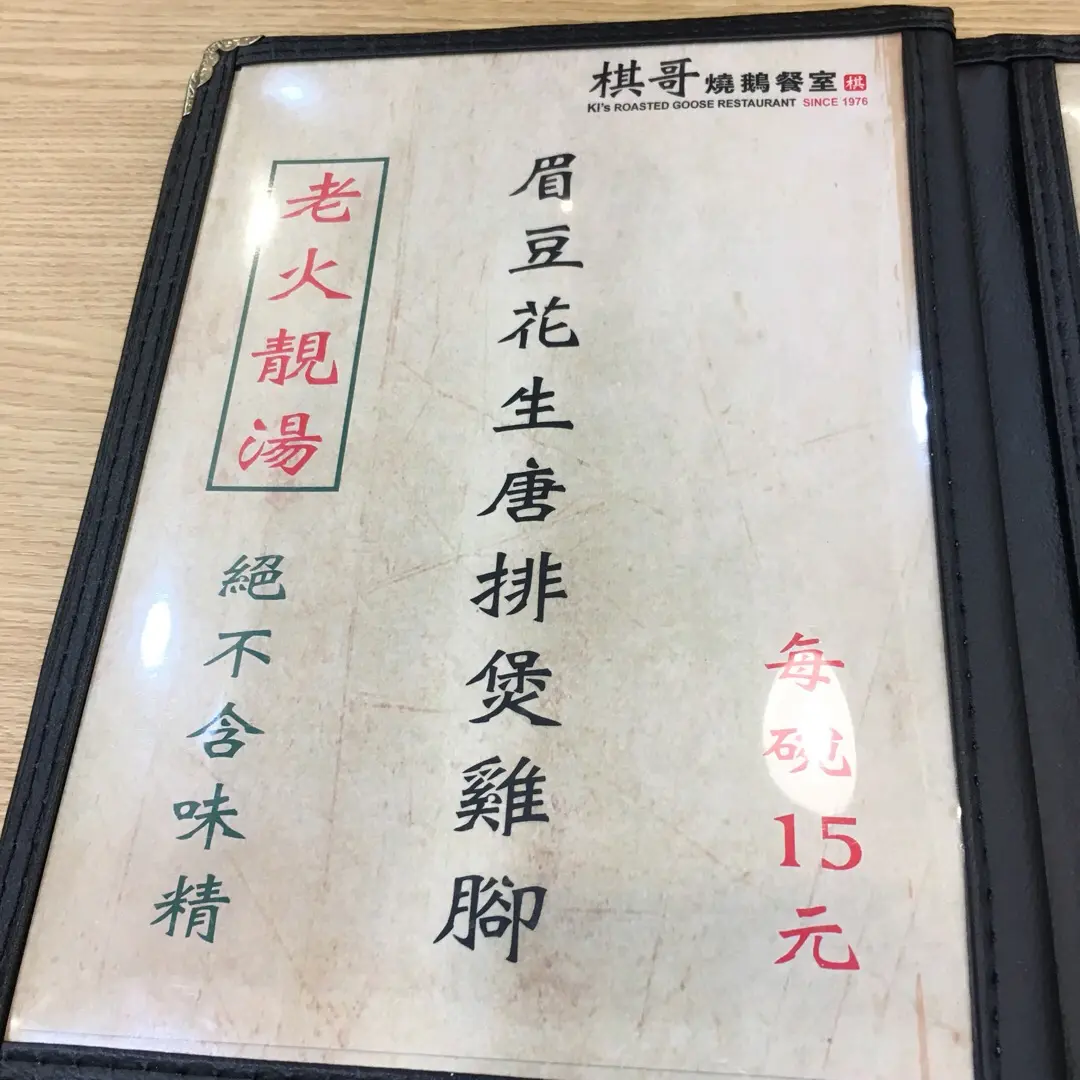 棋哥燒鵝餐室 棋
KI's ROASTED GOOSE RESTAURANT SINCE 1976
老火靚湯
絕不含味精
眉豆花生唐排煲雞腳
每碗15元